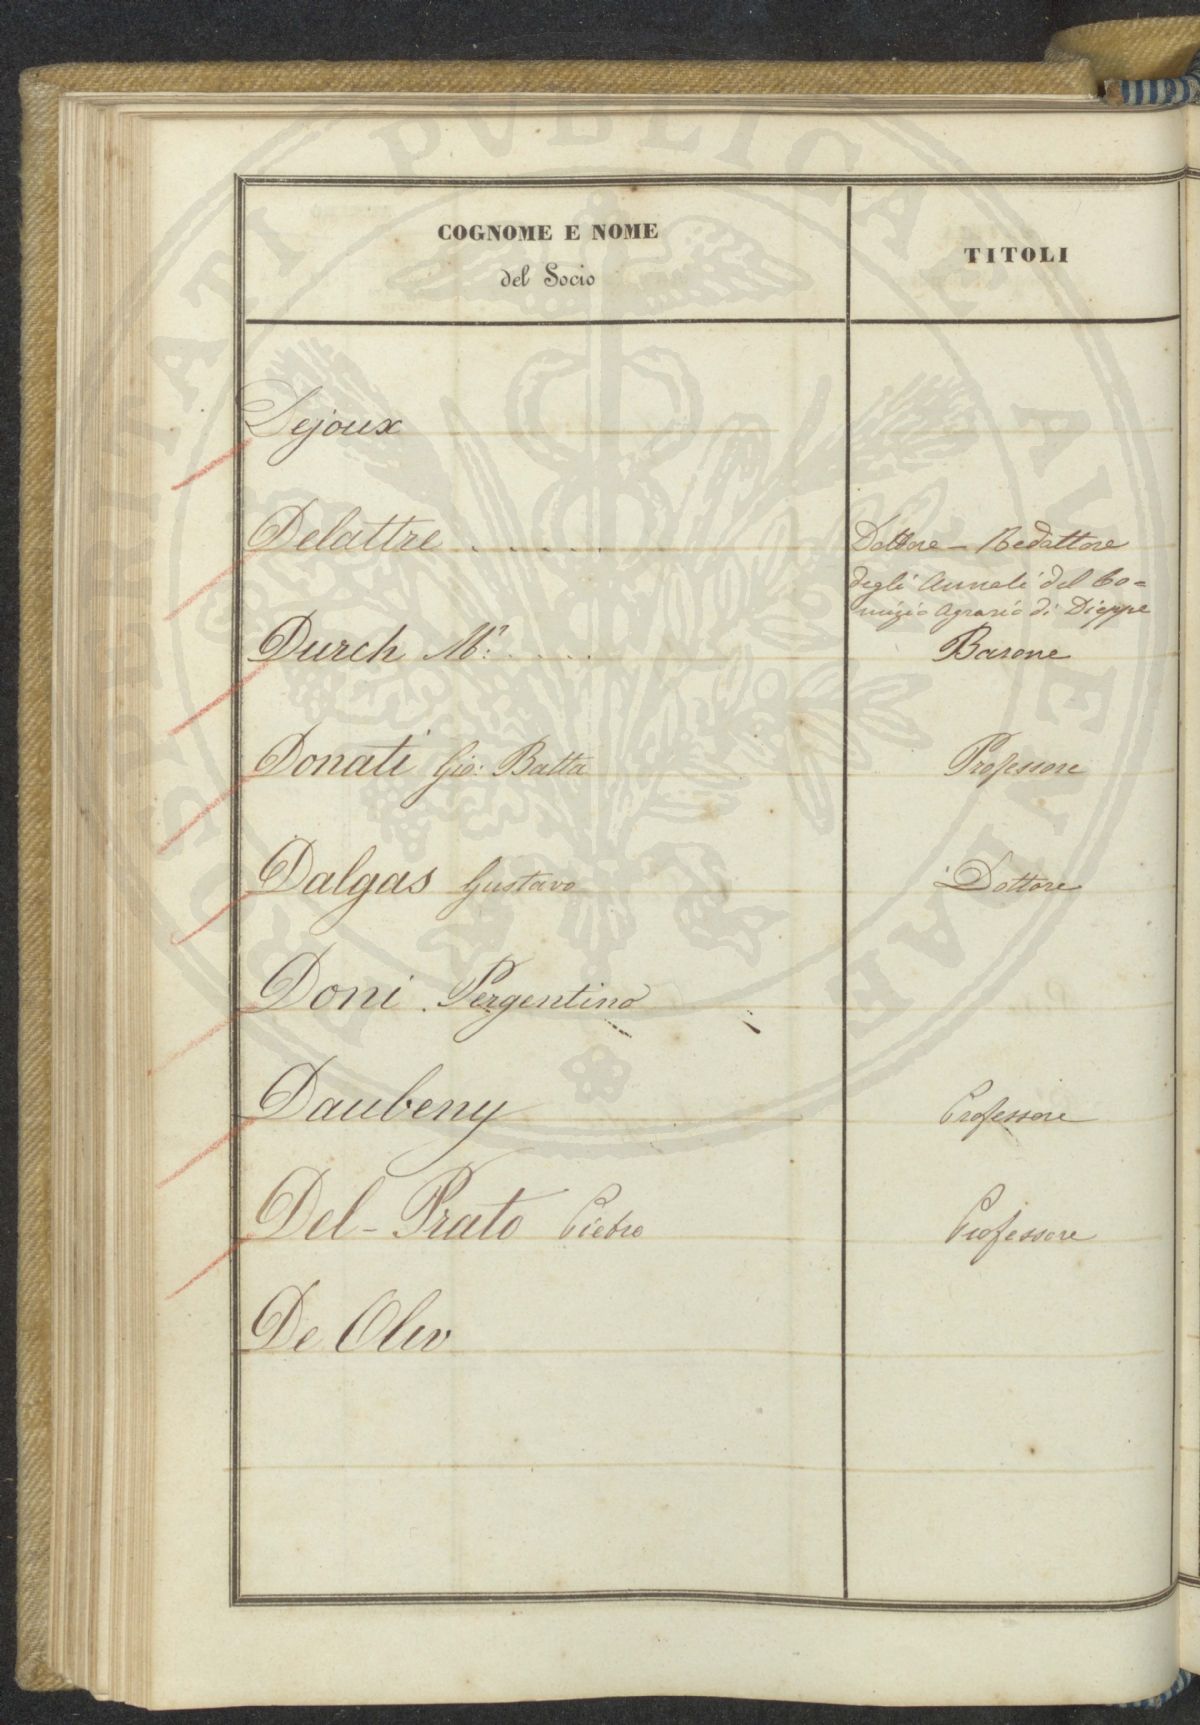 COGNOME E NOME
del Socio
TITOLI
Dejoux
Delattre . . . . . .
Dottore - Redattore
degli Annali del Co=
mizio Agrario di Dieppe
Durch Mr: . . . . .
Barone
Donati Gio: Batta
Professore
Dalgas Gustavo
Dottore
Doni . Pergentino
Daubeny
Professore
Del-Prato Pietro
Professore
De Olw
PROSPERITATI PVBLICAE AVGENDAE